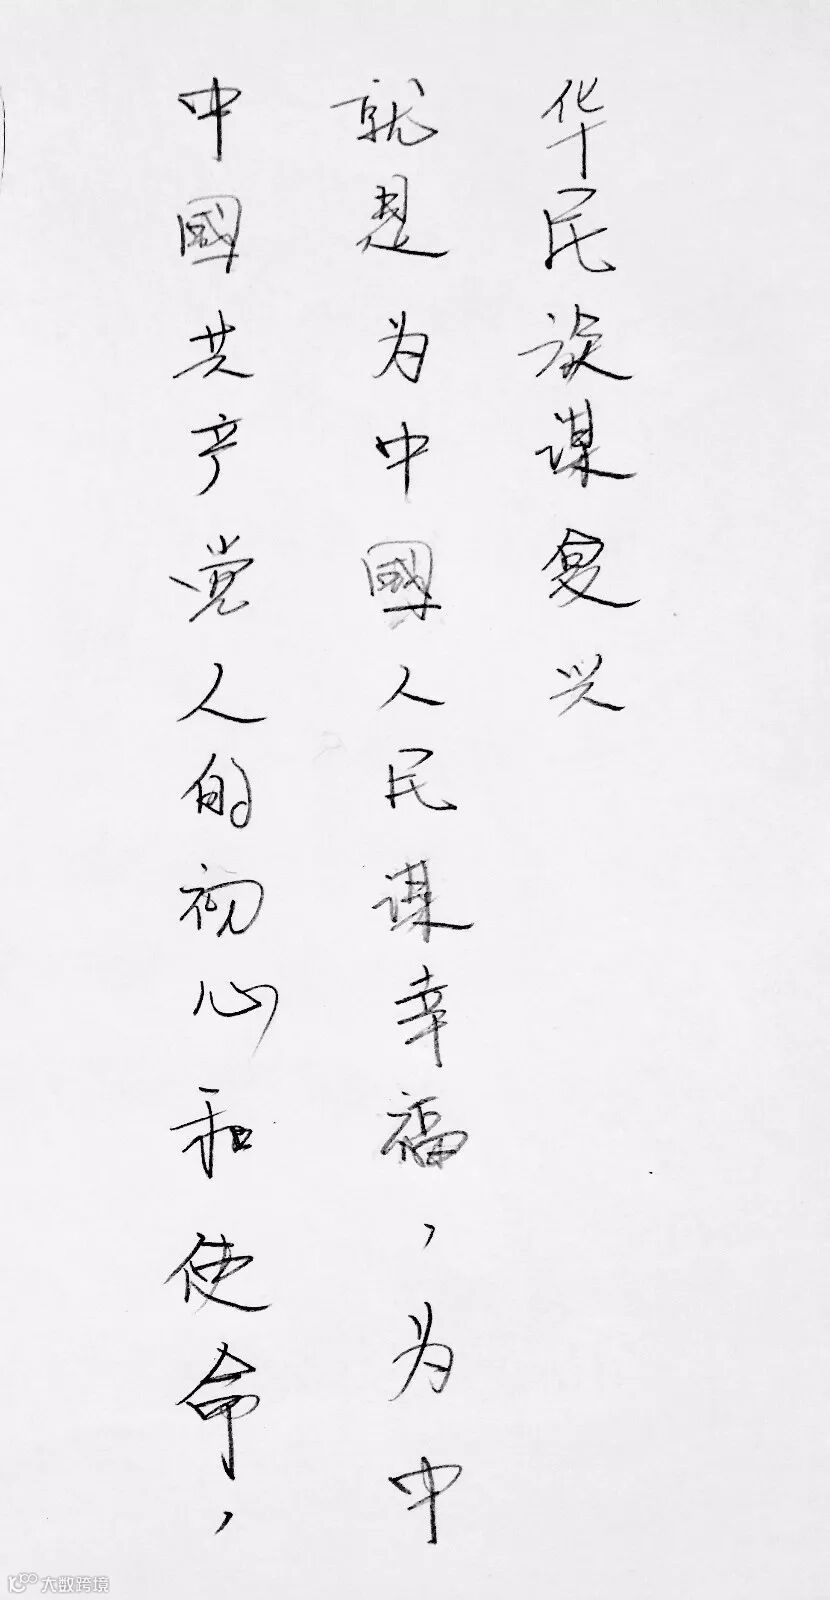 中國共产党人的初心和使命，
就是为中國人民谋幸福，为中
华民族谋复兴
大数跨境